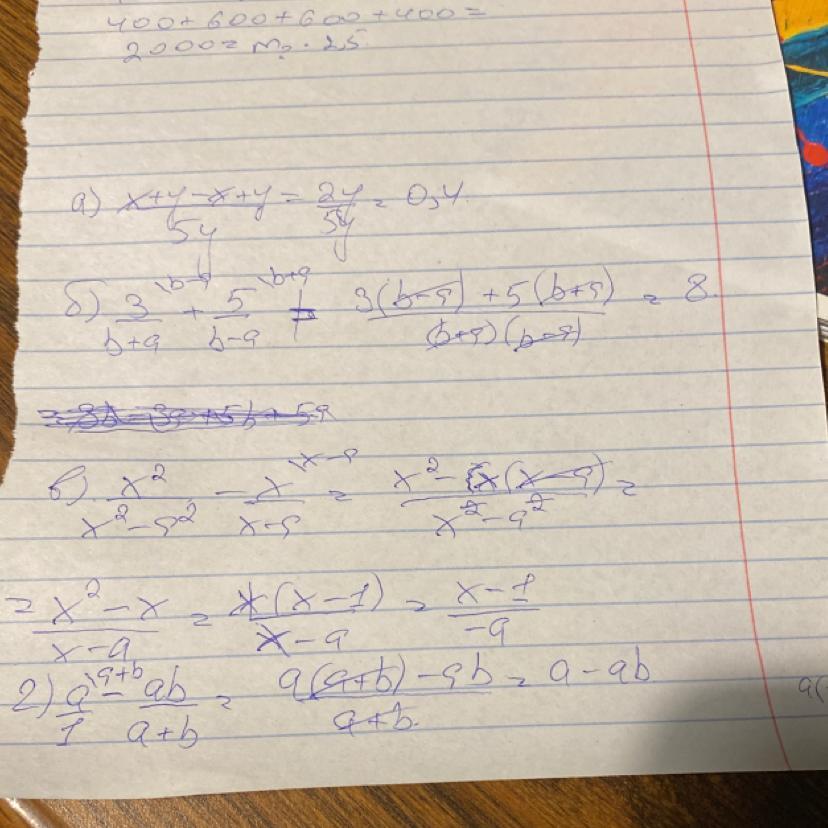 400+600+600+400=
2000= m₂ · 25
а) x+y-x+y/5y = 2y/5y = 0,4.
б) 3/b+a \b-a + 5/b-a \b+a = 3(b-a)+5(b+a)/(b+a)(b-a) = 8.
= 3b-3a+5b+5a
в) x²/x²-a² - x/x-a \x-a = x²-x(x-a)/x²-a² =
= x²-x/x-a = x(x-1)/x-a = x-1/-a
г) a/1 \a+b - ab/a+b = a(a+b)-ab/a+b. = a-ab